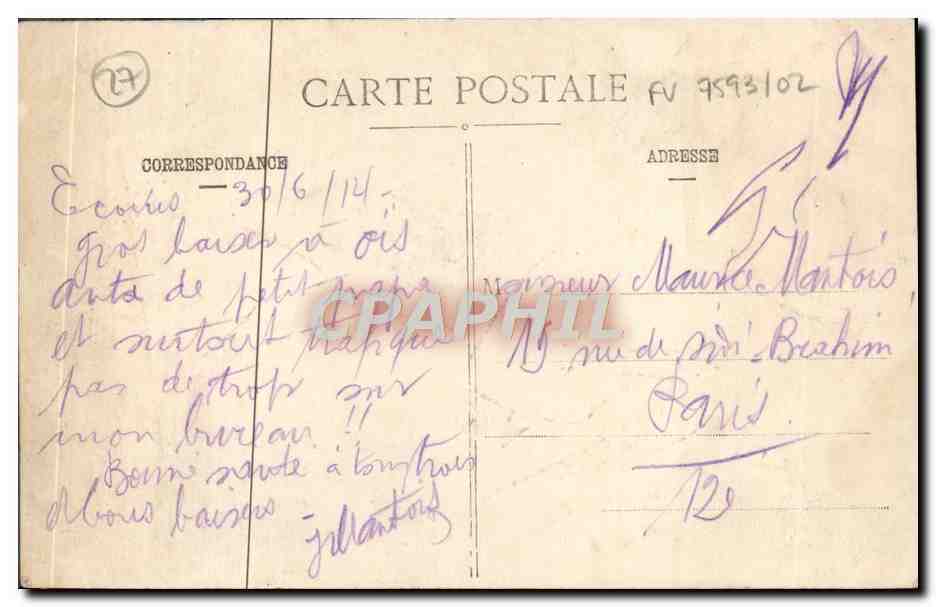 27
CARTE POSTALE
FV 7593/02
CORRESPONDANCE
30/6/14 -
gros baiser à
de petit
et surtout
pas de trop sur
mon bureau !!
Bonne santé à tous trois
baisers -
JMantois
ADRESSE
Monsieur Maurice Mantois
15 rue de Sidi-Brahim
Paris.
12e
CPAPHIL